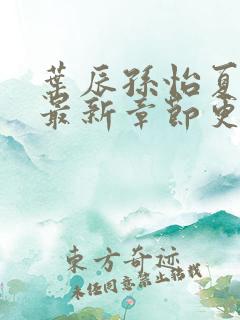 葉辰孫怡夏
最新章節更
東方奇迹
未经同意禁止转载